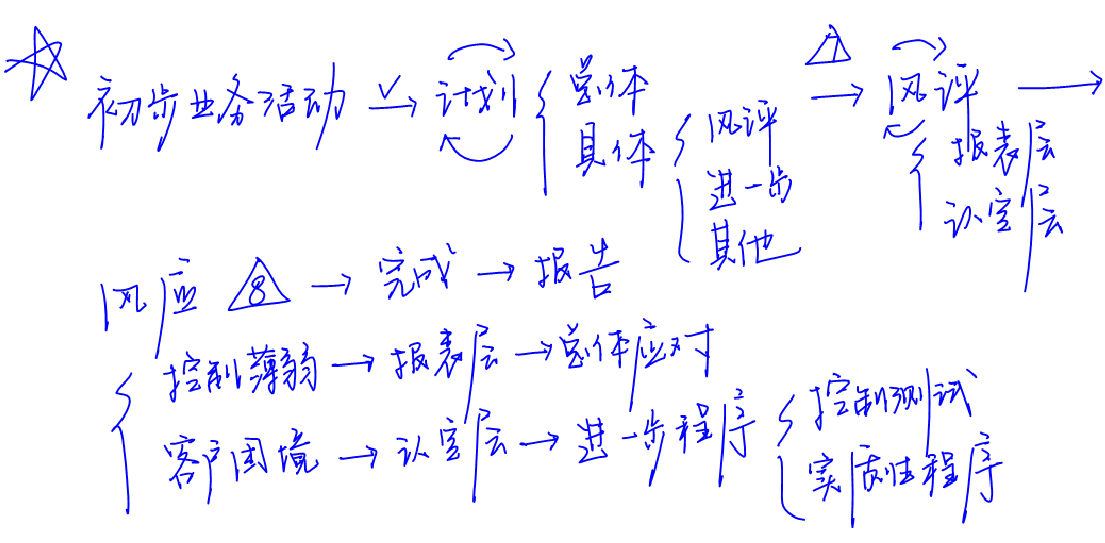 初步业务活动 → 计划 { 总体
具体 { 风评
进一步
其他
→ 风评 →
{ 报表层
认定层
风应 8 → 完成 → 报告
{ 控制薄弱 → 报表层 → 总体应对
客户困境 → 认定层 → 进一步程序 { 控制测试
实质性程序